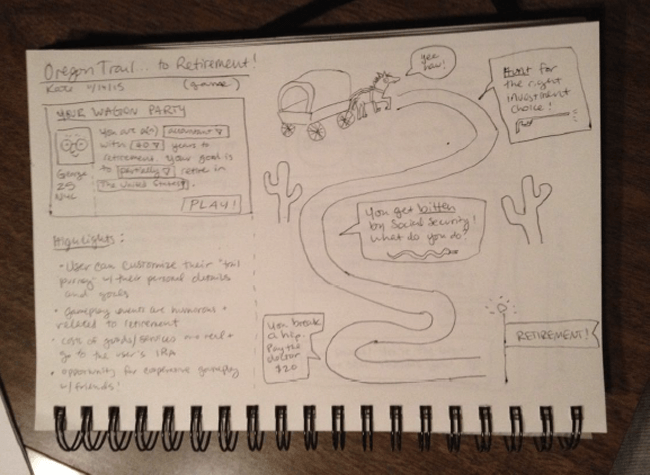 Oregon Trail... to Retirement!
(game)
YOUR WAGON PARTY
You are a(n) accountant
with 40 years to
retirement. Your goal is
to partially retire in
The United States.
George
25
NYC
PLAY!
Highlights:
• User can customize their "trail
w/ their personal details
and goals
• Gameplay events are humorous +
related to retirement
• costs of goods/services are real +
go to the user's IRA
• opportunity for cooperative gameplay
w/friends!
yee
haw!
Hunt for
the right
investment
choice!
You get bitten
by Social Security!
What do you do?
You break
a hip.
Pay the
doctor
$20
RETIREMENT!